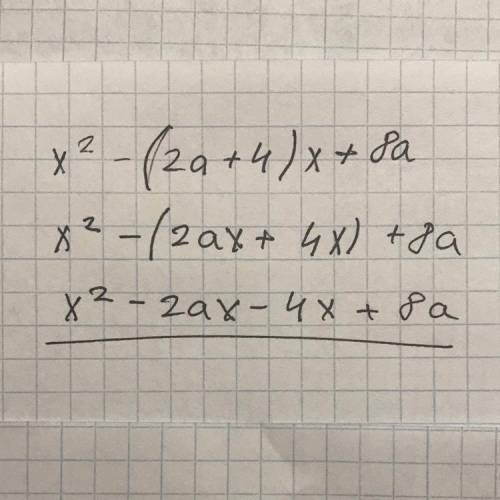 x² - (2a + 4) x + 8a
x² - (2ax + 4x) + 8a
x² - 2ax - 4x + 8a